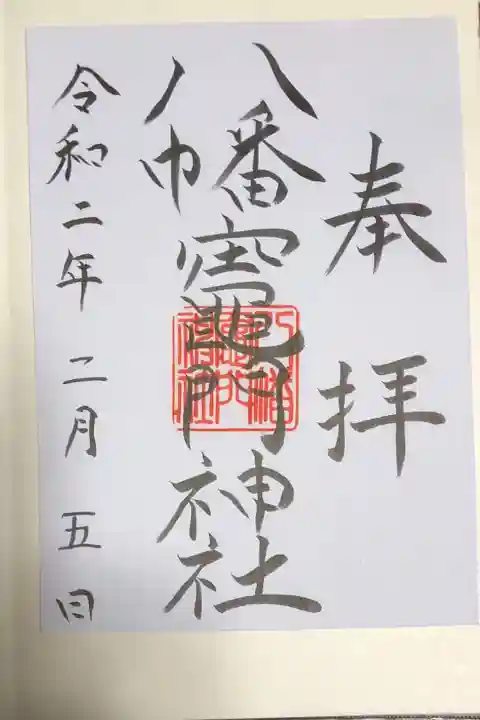 奉拝
八幡竈門神社
令和二年 二月 五日